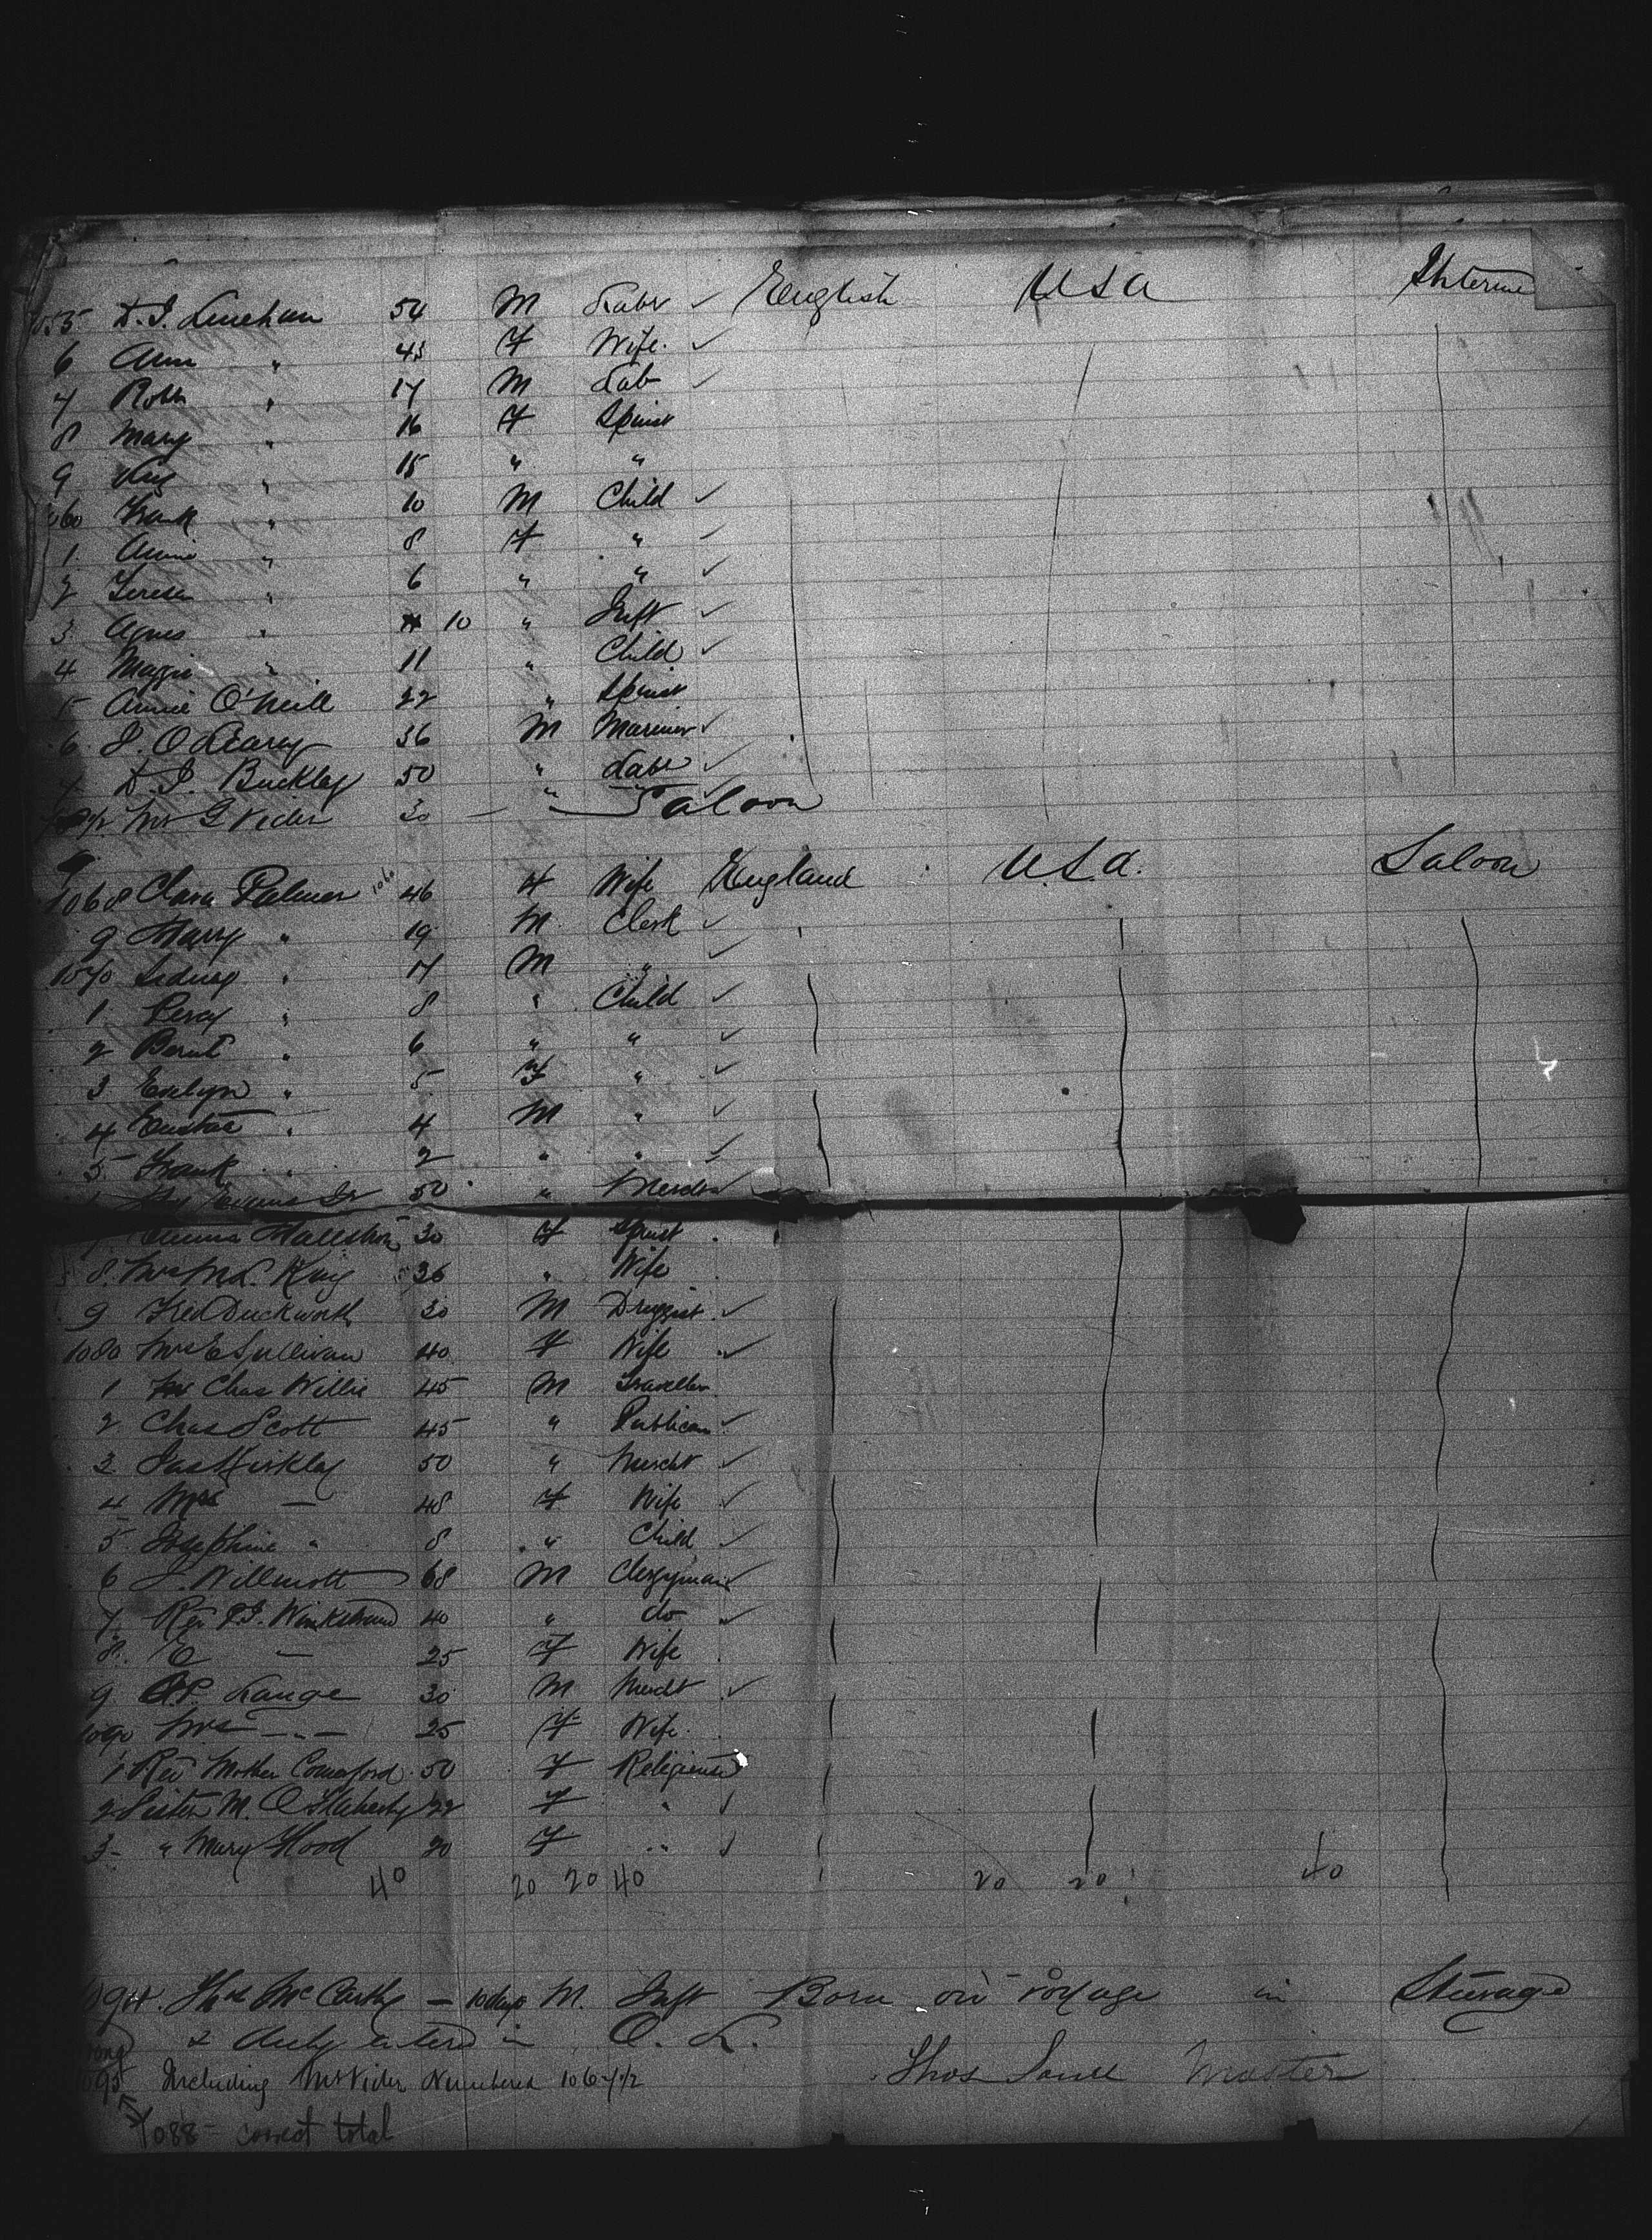 1055 D. J. Linehan 54 M Labr ✓ English USA Steerage
6 Ann " 43 F Wife ✓
7 Robt " 17 M Lab ✓
8 Mary " 16 F Spinst
9 " 15 " "
1060 Frank " 10 M Child ✓
1 Annie " 8 F " ✓
2 Teresa " 6 " " ✓
3 Agnes " 10 " Inft ✓
4 Maggie " 11 " Child ✓
5 Annie O'Neill 22 " Spinst
6 J. O'Leary 36 M Mariner ✓
7 D. J. Buckley 50 " Labr ✓
1/2 Mr G Vider 30 — " Saloon
1068 Clara Palmer 46 F Wife England U.S.A. Saloon
9 Harry " 19 M Clerk ✓
1070 Sidney " 17 M " ✓
1 Percy " 8 " Child ✓
2 " 6 " " ✓
3 Evelyn " 5 F " ✓
4 Eustace " 4 M " ✓
5 Frank " 2 " " ✓
Evans 50 " Mercht
7 Emma Hallstrom 30 F Spinst
8 Mrs M L. King 36 " Wife
9 Fred Duckworth 30 M Druggist ✓
1080 Mrs E Sullivan 40 F Wife ✓
1 Chas Willis 45 M Traveller
2 Chas Scott 45 " Publican ✓
3 Jas Kirkley 50 " Mercht ✓
4 Mrs — 48 F Wife ✓
5 Josephine " 8 " Child ✓
6 J. Willmott 68 M Clergyman ✓
7 Rev 40 " do ✓
8 E — 25 F Wife
9 A.P. Lange 30 M Mercht ✓
1090 Mrs — " — 25 F Wife
1 Rev Mother Comerford 50 F Religieuse
2 Sister M. O'Flaherty 22 F " ✓
3 " Mary Hood 20 F " ✓
40 20 20 40 20 20 40
1094. Thos McCarthy — 10 days M. Inft Born on voyage in Steerage
& duly entered in O. L.
1095 Including Mr Vider Numbered 1067 1/2 Thos Master
1088 — correct total